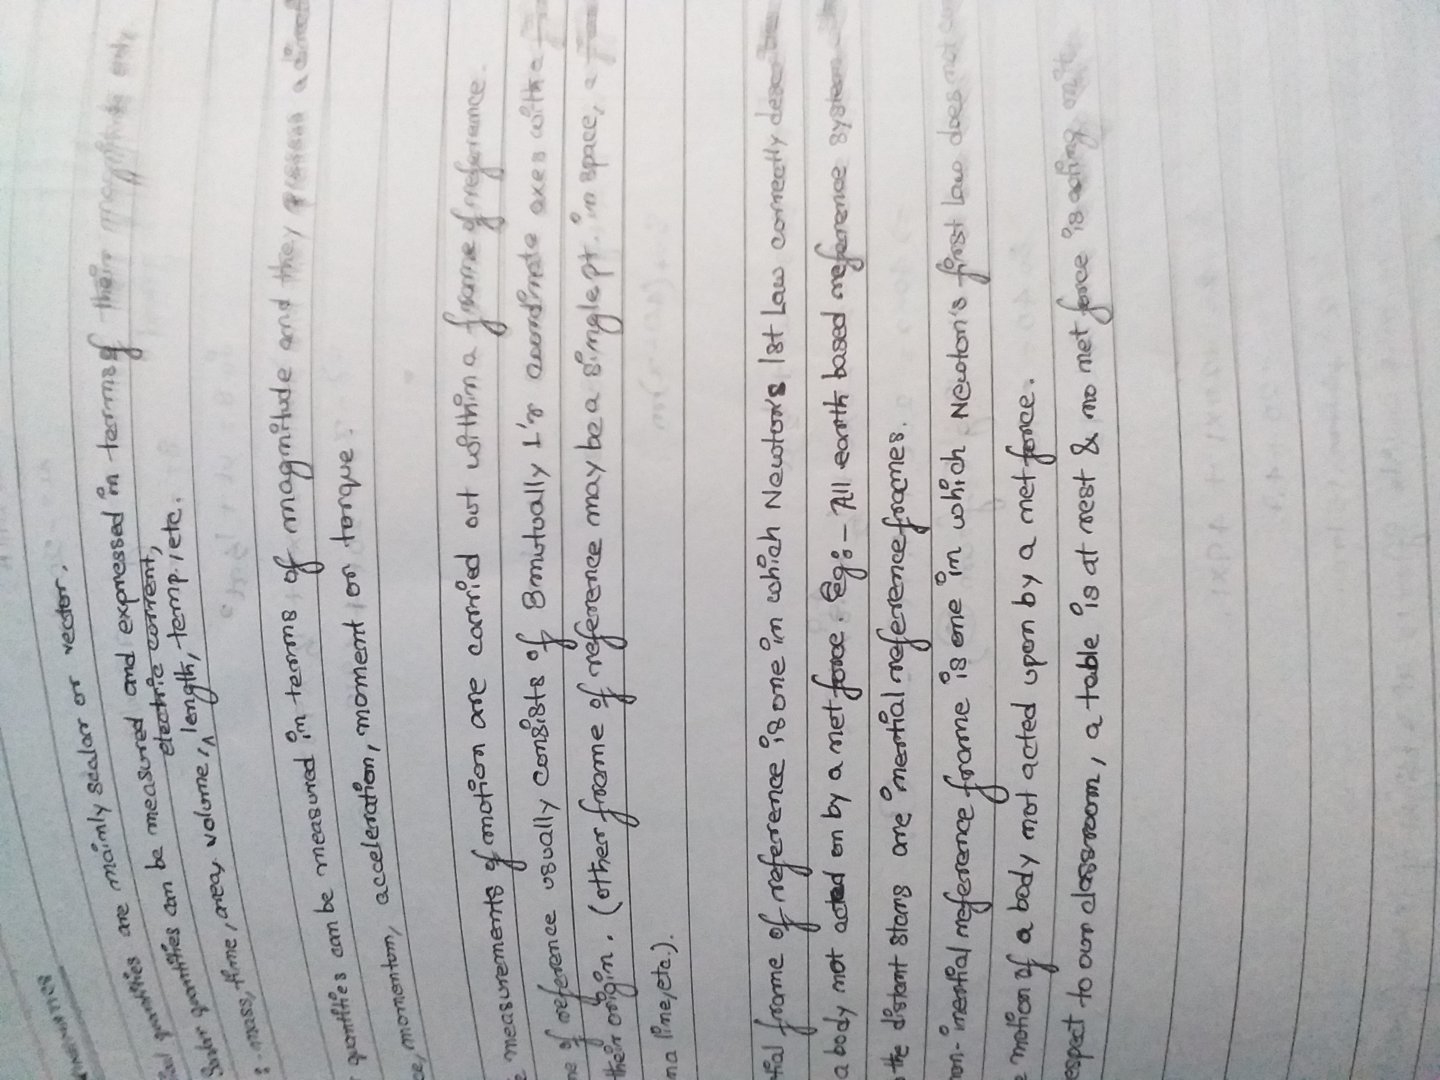 quantities are mainly scalar or vector.
quantities can be measured and expressed in terms of their magnitude only.
electric current,
mass, time, area, volume, ^ length, temp., etc.
quantities can be measured in terms of magnitude and they possess a
momentum, acceleration, moment or torque.
measurements of motion are carried out within a frame of reference.
of reference usually consists of 3 mutually ⊥'r coordinate axes with the
their origin. (other frame of reference may be a single pt. in space, a
na line, etc.).
tial frame of reference is one in which Newton's 1st Law correctly
a body not acted on by a net force. eg:- All earth based reference system
the distant stars are inertial reference frames.
non-inertial reference frame is one in which Newton's first law does not
e motion of a body not acted upon by a net force.
espect to our classroom, a table is at rest & no net force is acting on it